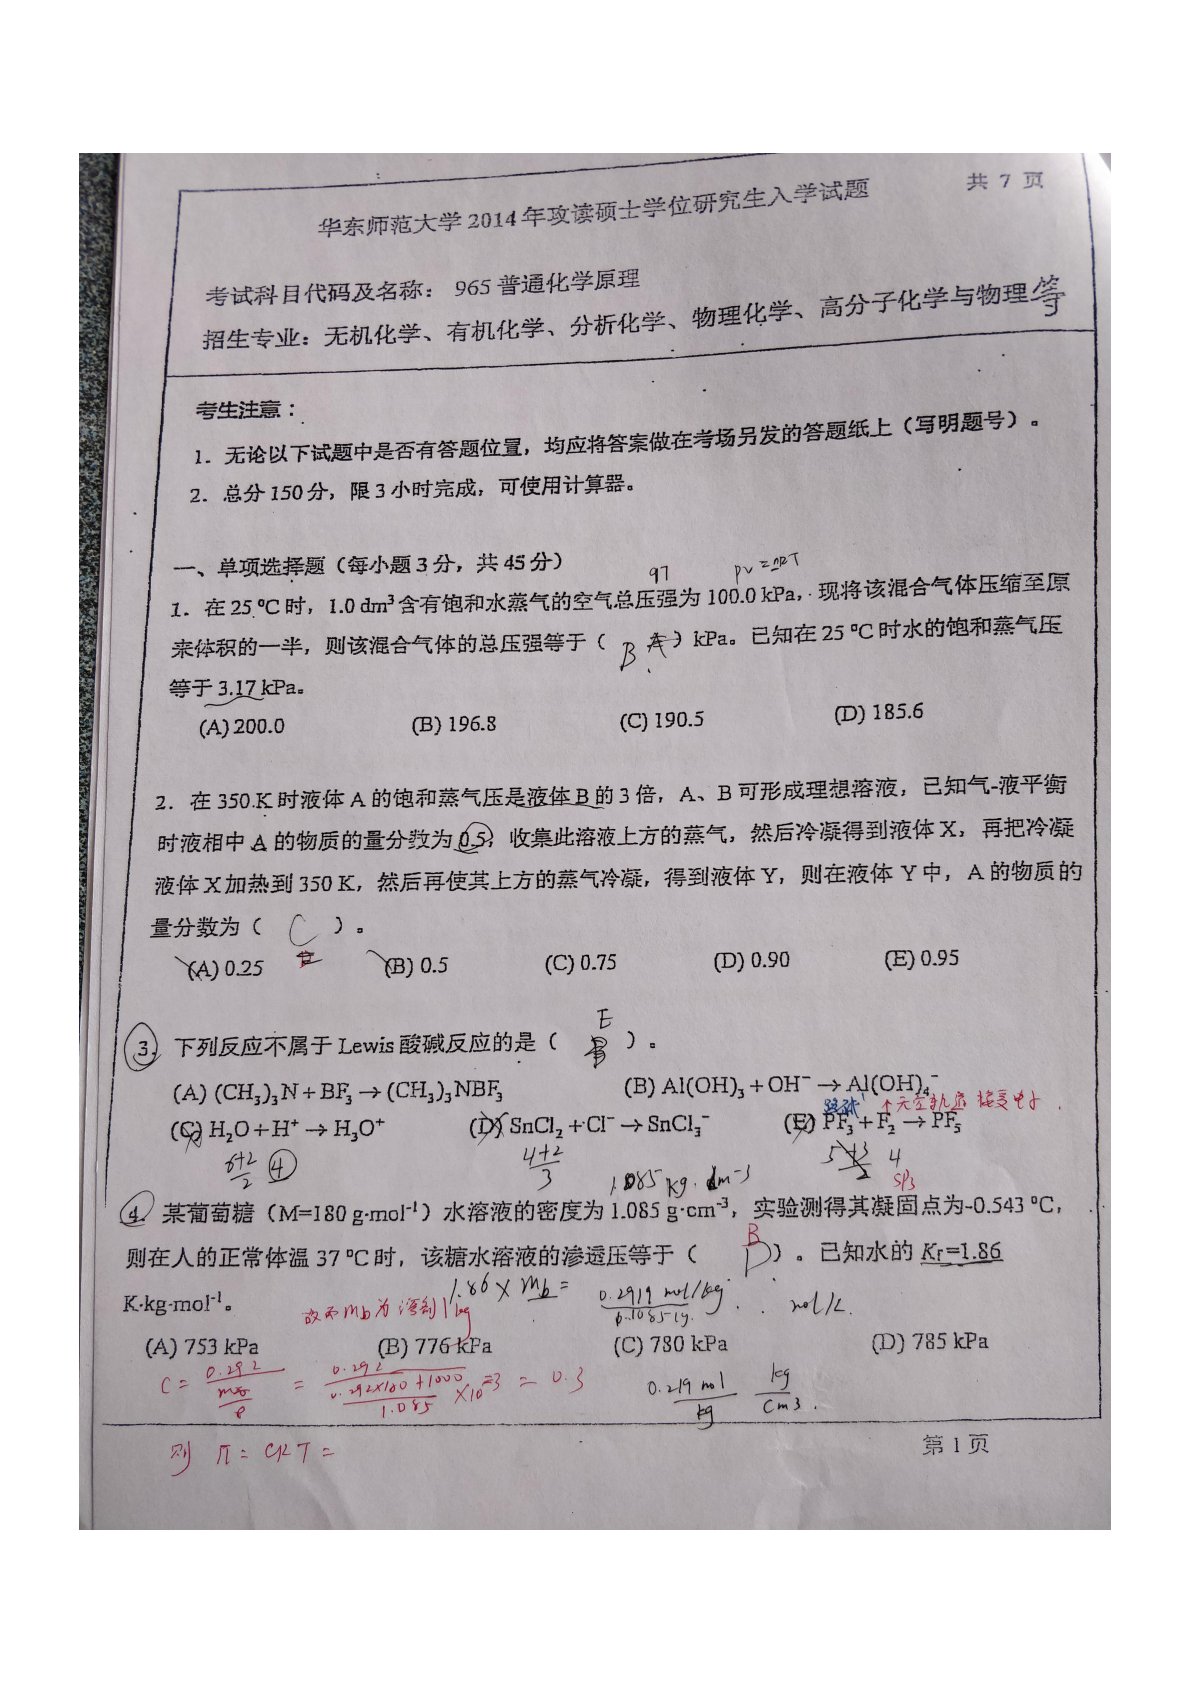 共 7 页
华东师范大学 2014 年攻读硕士学位研究生入学试题
考试科目代码及名称： 965 普通化学原理
招生专业：无机化学、有机化学、分析化学、物理化学、高分子化学与物理等
考生注意：
1. 无论以下试题中是否有答题位置，均应将答案做在考场另发的答题纸上（写明题号）。
2. 总分 150 分，限 3 小时完成，可使用计算器。
一、单项选择题（每小题 3 分，共 45 分）
97 PV=nRT
1. 在 25 ºC 时，1.0 dm³ 含有饱和水蒸气的空气总压强为 100.0 kPa，现将该混合气体压缩至原
来体积的一半，则该混合气体的总压强等于（ B A ）kPa。已知在 25 ºC 时水的饱和蒸气压
等于 3.17 kPa。
(A) 200.0 (B) 196.8 (C) 190.5 (D) 185.6
2. 在 350 K 时液体 A 的饱和蒸气压是液体 B 的 3 倍，A、B 可形成理想溶液，已知气-液平衡
时液相中 A 的物质的量分数为 0.5，收集此溶液上方的蒸气，然后冷凝得到液体 X，再把冷凝
液体 X 加热到 350 K，然后再使其上方的蒸气冷凝，得到液体 Y，则在液体 Y 中，A 的物质的
量分数为（ C ）。
(A) 0.25 (B) 0.5 (C) 0.75 (D) 0.90 (E) 0.95
E
3. 下列反应不属于 Lewis 酸碱反应的是（ ）。
(A) (CH₃)₃N + BF₃ → (CH₃)₃NBF₃ (B) Al(OH)₃ + OH⁻ → Al(OH)₄⁻
↑无空轨道 接受电子
(C) H₂O + H⁺ → H₃O⁺ (D) SnCl₂ + Cl⁻ → SnCl₃⁻ (E) PF₃ + F₂ → PF₅
6+2/2 ④ 4+2/3 5+3/2 4
1.085 kg·dm⁻³ SP3
4. 某葡萄糖（M=180 g·mol⁻¹）水溶液的密度为 1.085 g·cm⁻³，实验测得其凝固点为-0.543 ºC，
则在人的正常体温 37 ºC 时，该糖水溶液的渗透压等于（ D B ）。已知水的 Kf=1.86
K·kg·mol⁻¹。
1.86×mb= 0.2919 mol/kg mol/L
(A) 753 kPa (B) 776 kPa (C) 780 kPa (D) 785 kPa
C = 0.292/(m/ρ) = 0.292/((0.292×180+1000)/1.085 ×10⁻³) = 0.3 0.219 mol/kg kg/cm3
第 1 页
则 Π = CRT =